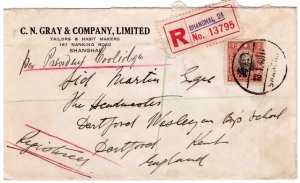 C. N. GRAY & COMPANY, LIMITED
TAILORS & HABIT MAKERS
161 NANKING ROAD
SHANGHAI
Per President Coolidge
R
SHANGHAI
No. 13795
Sid Martin Esqre
The Headmaster
Dartford Wesleyan Boys School
Dartford Kent
England
Registered